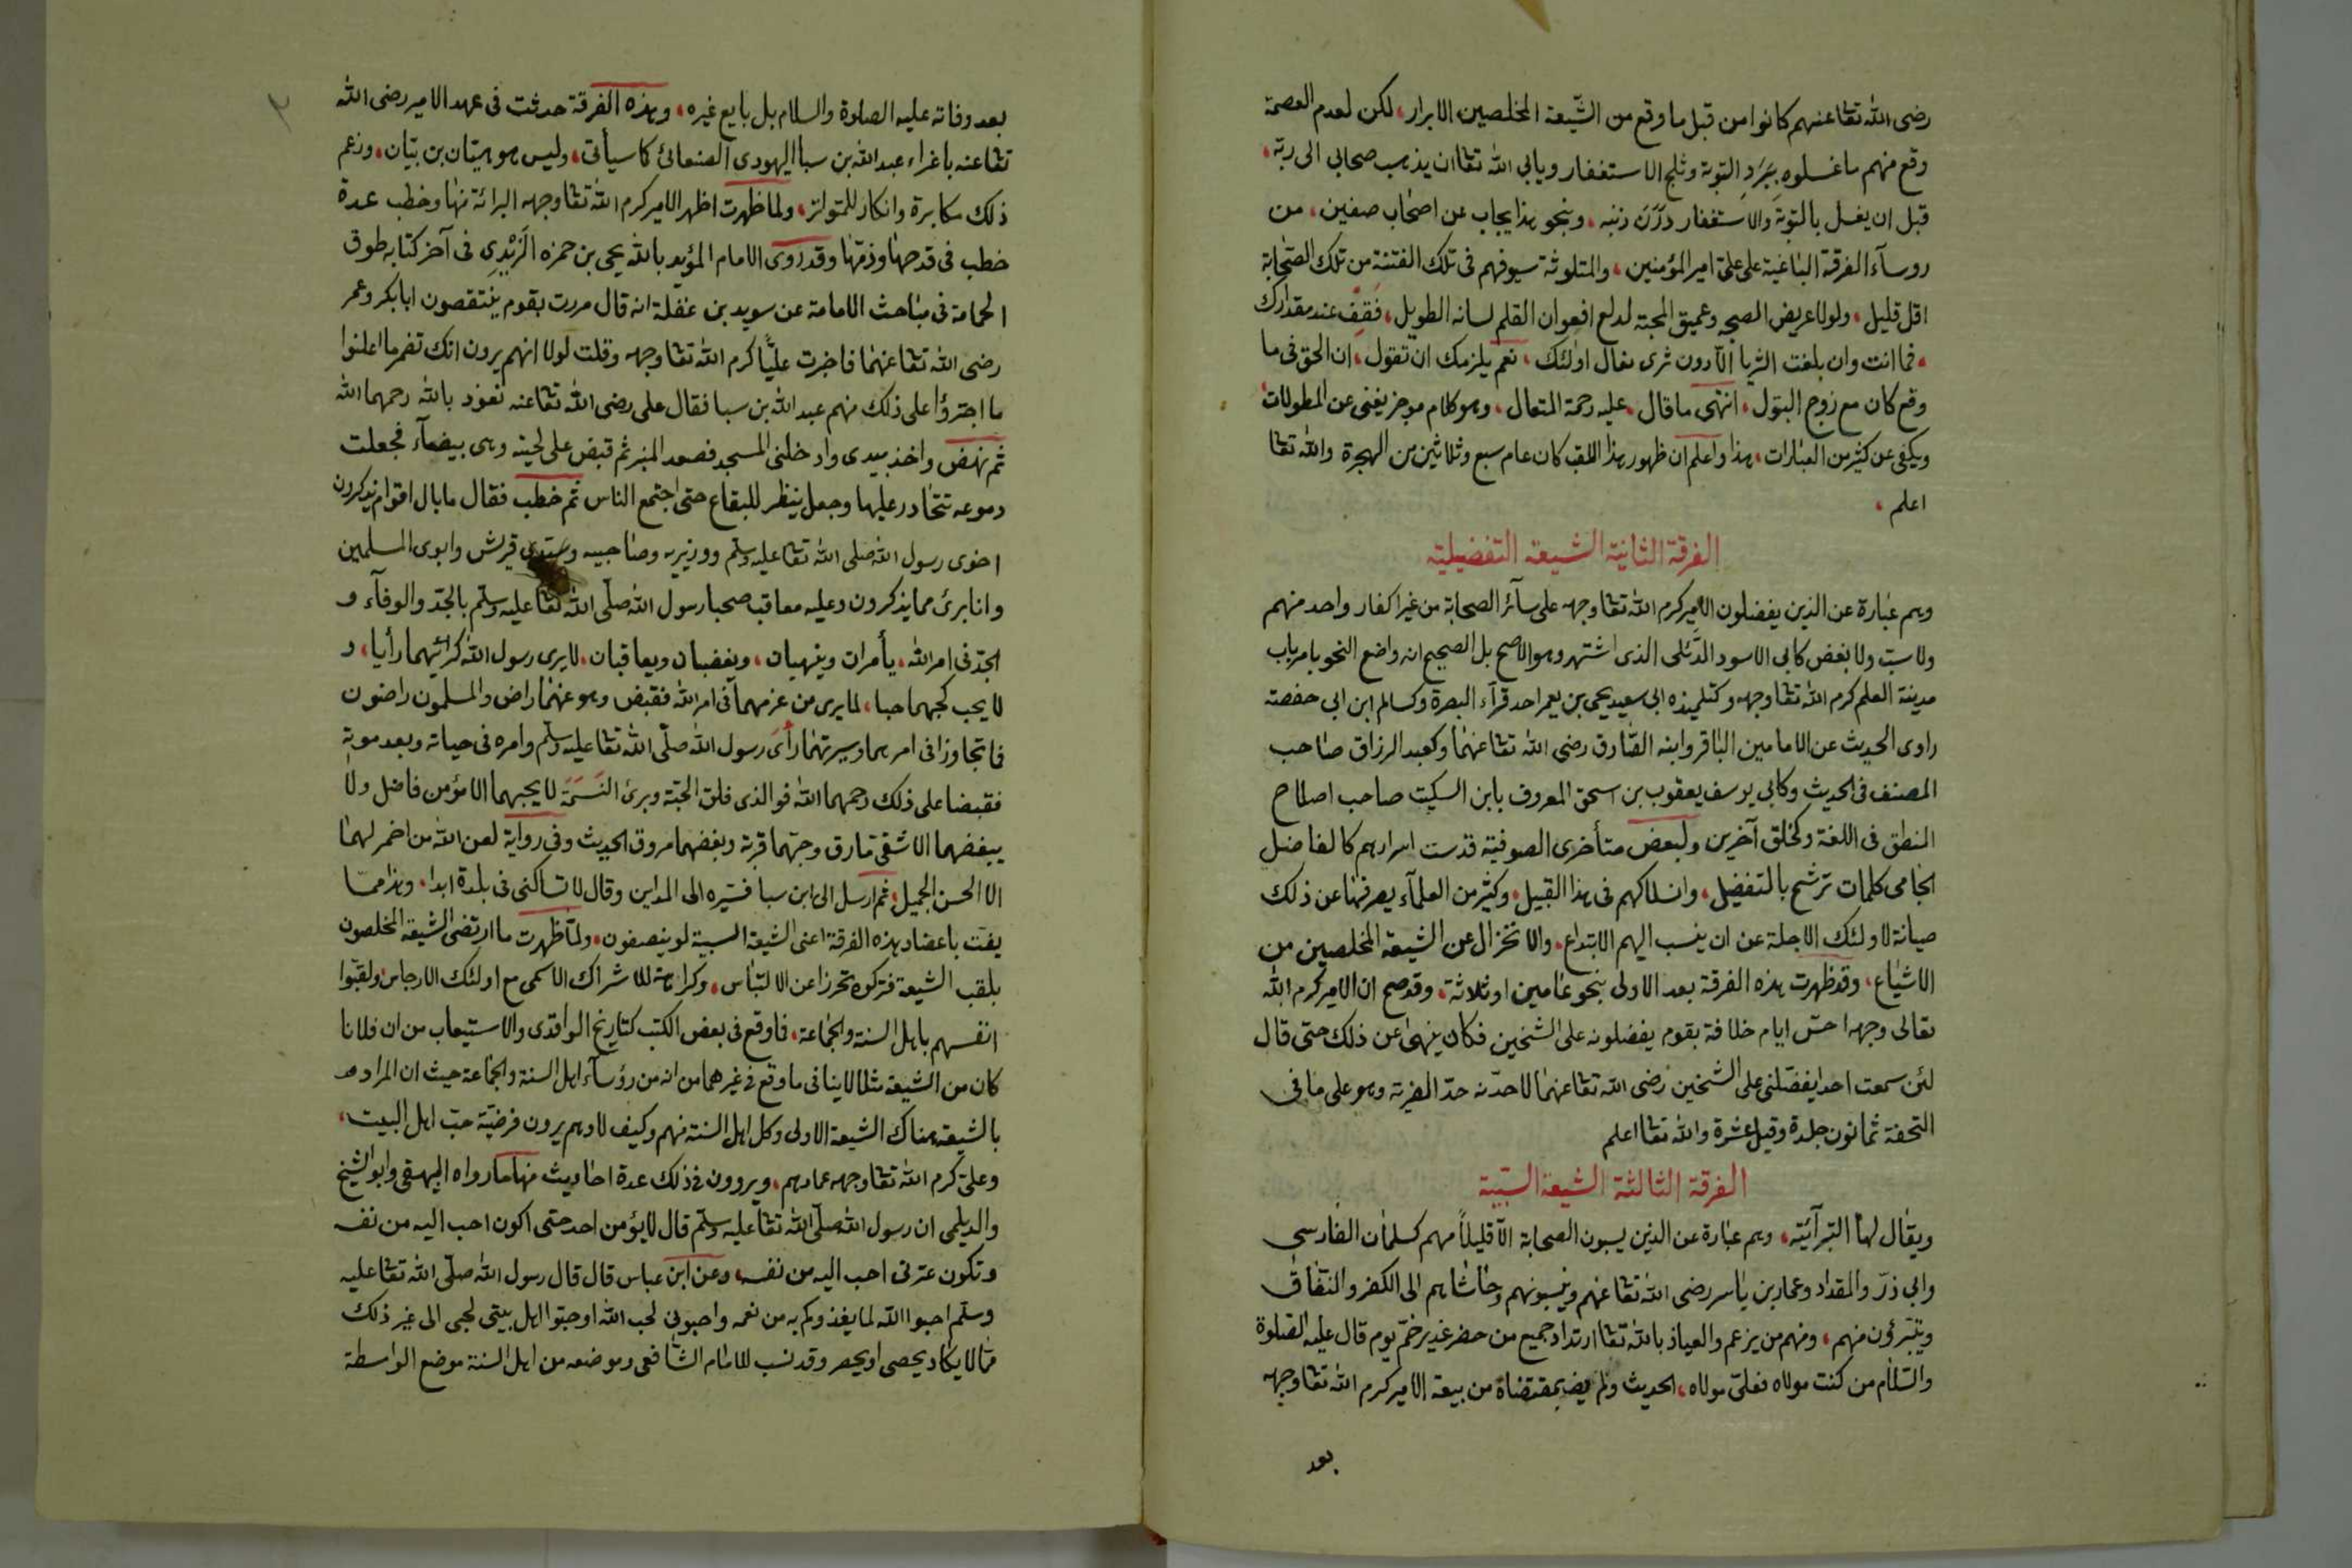 رضى الله تعا عنهم كانوا من قبل ما وقع من الشّيعة المخلصين الابرار، لكن لعدم العصمة
وقع منهم ما غسلوه بِبَرَدِ التوبة وثلج الاستغفار ويابي الله تعا ان يذهب صحابي الى ربّه،
قبل ان يغسل بالتوبة والاستغفار دَرَنَ ذنبه، وبنحو هذا يجاب عن اصحاب صفين، من
روسآء الفرقة الباغية على علىّ امير المؤمنين، والمتلوثة سيوفهم فى تلك الفتنة من تلك الصحابة
اقل قليل، ولولا عريض الصحبه وعميق المحبة لدلع افعوان القلم لسانه الطويل، فَقِفْ عند مقدارك
، فما انت وان بلغت الثريا الّا دون ثرى نعال اولئك، نعم يلزمك ان تقول، ان الحق فى ما
وقع كان مع زوج البتول، انتهى ما قال، عليه رحمة المتعال، وهو كلام موجز يغنى عن المطولات
ويكفى عن كثير من العبارات، هذا واعلم ان ظهور هذا اللقب كان عام سبع وثلاثين من الهجرة والله تعا
اعلم ،
الفرقة الثانية الشيعة التفضيلية
وهم عبارة عن الذين يفضلون الامير كرم الله تعا وجهه على سآئر الصحابة من غير اكفار واحد منهم
ولا سبّ ولا بغض كابي الاسود الدُّئلى الذى اشتهر وهو الاصح بل الصحيح انه واضع النحو بامر باب
مدينة العلم كرم الله تعا وجهه وكتلميذه ابى سعيد يحيى بن يعمر احد قرآء البصرة وكسالم ابن ابي حفصة
راوى الحديث عن الامامين الباقر وابنه الصّادق رضى الله تعا عنهما وكعبد الرزاق صاحب
المصنف فى الحديث وكابي يوسف يعقوب بن اسحق المعروف بابن السكيت صاحب اصلاح
المنطق فى اللغة وكخلق آخرين ولبعض متأخرى الصوفية قدست اسرارهم كالفاضل
الجامى كلمات ترشح بالتفضيل، وانسلاكهم فى هذا القبيل، وكثير من العلمآء يصرفها عن ذلك
صيانة لاولئك الاجلة عن ان ينسب اليهم الابتداع، والانخزال عن الشيعة المخلصين من
الاشياع، وقد ظهرت هذه الفرقة بعد الاولى بنحو عامين او ثلاثة، وقد صح ان الامير كرم الله
تعالى وجهه احسّ ايام خلافة بقوم يفضلونه على الشخين فكان ينهى عن ذلك حتى قال
لئن سمعت احدا يفضّلنى على الشخين رضى الله تعا عنهما لاحدّنه حدّ الفرية وهو على ما فى
التحفة ثمانون جلدة وقيل عشرة والله تعا اعلم
الفرقة الثالثة الشيعة السّبيّة
ويقال لها التبرآئيّه، وهم عبارة عن الذين يسبون الصحابة الّا قليلاً منهم كسلمان الفارسى
وابي ذرّ والمقداد وعمار بن ياسر رضى الله تعا عنهم وينسبونهم وحاشاهم الى الكفر والنّفاق
ويتبرؤن منهم، ومنهم من يزعم والعياذ بالله تعا ارتداد جميع من حضر غدير خمّ يوم قال عليه الصّلوة
والسّلام من كنت مولاه فعلىّ مولاه، الحديث ولم يف بمقتضاه من بيعة الامير كرم الله تعا وجهه
بعد
٢
بعد وفاته عليه الصلوة والسلام بل بايع غيره، وهذه الفرقة حدثت فى عهد الامير رضى الله
تعا عنه باغراء عبد الله بن سبا اليهودى الصنعانى كما سيأتى، وليس هو هيّان بن بيّان، وزعم
ذلك مكابرة وانكار للمتواتر، ولما ظهرت اظهر الامير كرم الله تعا وجهه البرائة منها وخطب عدة
خطب فى قدحها وذمّها وقد روى الامام المؤيد بالله يحيى بن حمزه الزَيْدِى فى آخر كتابه طوق
الحمامة فى مباحث الامامة عن سويد بن غفلة انه قال مررت بقوم ينتقصون ابابكر وعمر
رضى الله تعا عنهما فاخبرت عليّا كرم الله تعا وجهه وقلت لولا انهم يرون انك تضمر ما اعلنوا
ما اجترؤا على ذلك منهم عبد الله بن سبا فقال على رضى الله تعا عنه نعوذ بالله رحمهما الله
ثم نهض واخذ بيدى وادخلنى المسجد فصعد المنبر ثم قبض على لحيته وهى بيضآء فجعلت
دموعه تتحادر عليها وجعل ينظر للبقاع حتى اجتمع الناس ثم خطب فقال ما بال اقوام يذكرون
اخوى رسول الله صلى الله تعا عليه وسلم ووزيريه وصاحبيه وسيدى قريش وابوى المسلمين
وانا برئ مما يذكرون وعليه معاقب صحبا رسول الله صلّى الله تعا عليه وسلّم بالجدّ والوفآء و
الجدّ فى امر الله، يأمران وينهيان، ويغضبان ويعاقبان، لا يرى رسول الله كرأئيهما رأيا، و
لا يحب كحبهما حبا، لما يرى من عزمهما فى امر الله فقبض وهو عنهما راض والمسلمون راضون
فما تجاوزا فى امرهما وسيرتهما رأى رسول الله صلّى الله تعا عليه وسلّم وامره فى حياته وبعد موته
فقبضا على ذلك رحمهما الله فوالذى فلق الحبّة وبرئ النَسَمَةَ لا يحبهما الا مؤمن فاضل ولا
يبغضهما الا شقىّ مارق وحبّهما قربة وبغضهما مروق الحديث وفى رواية لعن الله من اضمر لهما
الا الحسن الجميل، ثم ارسل الى ابن سبا فسيّره الى المداين وقال لا تساكنى فى بلدة ابدا، وهذا ممّا
يفت باعضاد هذه الفرقة اعنى الشيعة السبية لو ينصفون، ولمّا ظهرت ما ارتضى الشيعة المخلصون
بلقب الشيعة فتركوه تحرزا عن الالتباس، وكراهة للاشراك الاسمى مع اولئك الارجاس ولقبّوا
انفسهم باهل السنة والجماعة، فما وقع فى بعض الكتب كتاريخ الواقدى والاستيعاب من ان فلانا
كان من الشيعة مثلا لا ينافى ما وقع فى غيرهما من انه من رؤسآء اهل السنة والجماعة حيث ان المراد
بالشيعة هناك الشيعة الاولى وكل اهل السنة منهم وكيف لا وهم يرون فرضيّة حبّ اهل البيت،
وعلىّ كرم الله تعا وجهه عمادهم، ويروون فى ذلك عدة احاديث منها ما رواه البيهقى وابو الشيخ
والديلمى ان رسول الله صلّى الله تعا عليه وسلّم قال لا يؤمن احد حتى اكون احب اليه من نفسه
وتكون عترتى احب اليه من نفسه، وعن ابن عباس قال قال رسول الله صلّى الله تعا عليه
وسلّم احبوا الله لما يغذوكم به من نعمه واحبونى لحب الله واحبّوا اهل بيتى لحبى الى غير ذلك
ممّا لا يكاد يحصى او يحصر وقد نسب للامام الشافعى وموضعه من اهل السنة موضع الواسطة